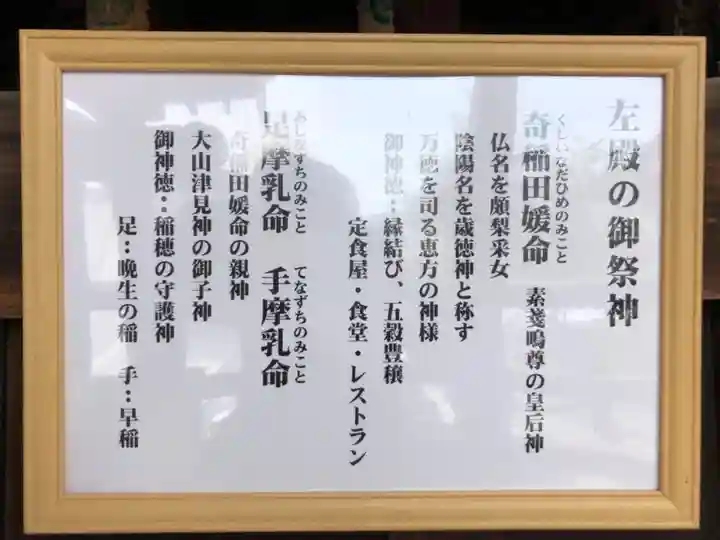 左殿の御祭神
くしいなだひめのみこと
奇稲田媛命 素戔嗚尊の皇后神
仏名を頗梨采女
陰陽名を歳徳神と称す
万徳を司る恵方の神様
御神徳：縁結び、五穀豊穣
定食屋・食堂・レストラン
あしなずちのみこと てなずちのみこと
足摩乳命 手摩乳命
奇稲田媛命の親神
大山津見神の御子神
御神徳：稲穂の守護神
足：晩生の稲 手：早稲